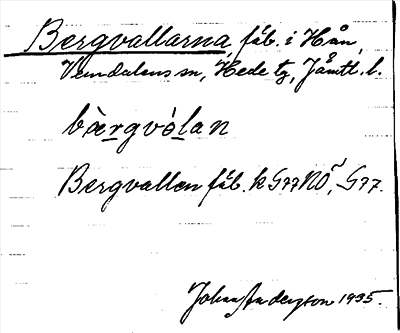 Bergvallarna, fäb. i Hån,
Vemdalens sn, Hede tg, Jämtl. l.
bæ̀rgvòlan
Bergvallen fäb. k G77 NÖ, G77.
Johan Anderzson 1935.